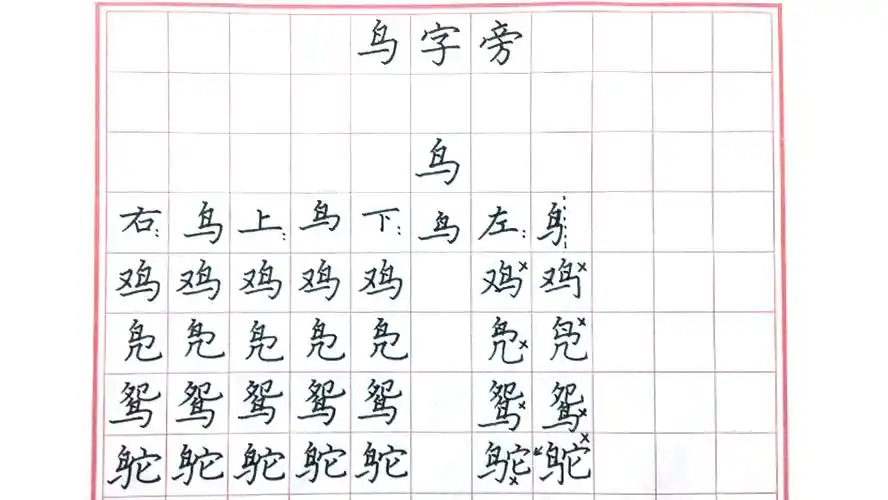 鸟字旁
鸟
右: 鸟 上: 鸟 下: 鸟 左: 鸟
鸡 鸡 鸡 鸡 鸡 鸡× 鸡×
凫 凫 凫 凫 凫 凫× 凫×
鸳 鸳 鸳 鸳 鸳 鸳× 鸳×
鸵 鸵 鸵 鸵 鸵 鸵× 鸵×